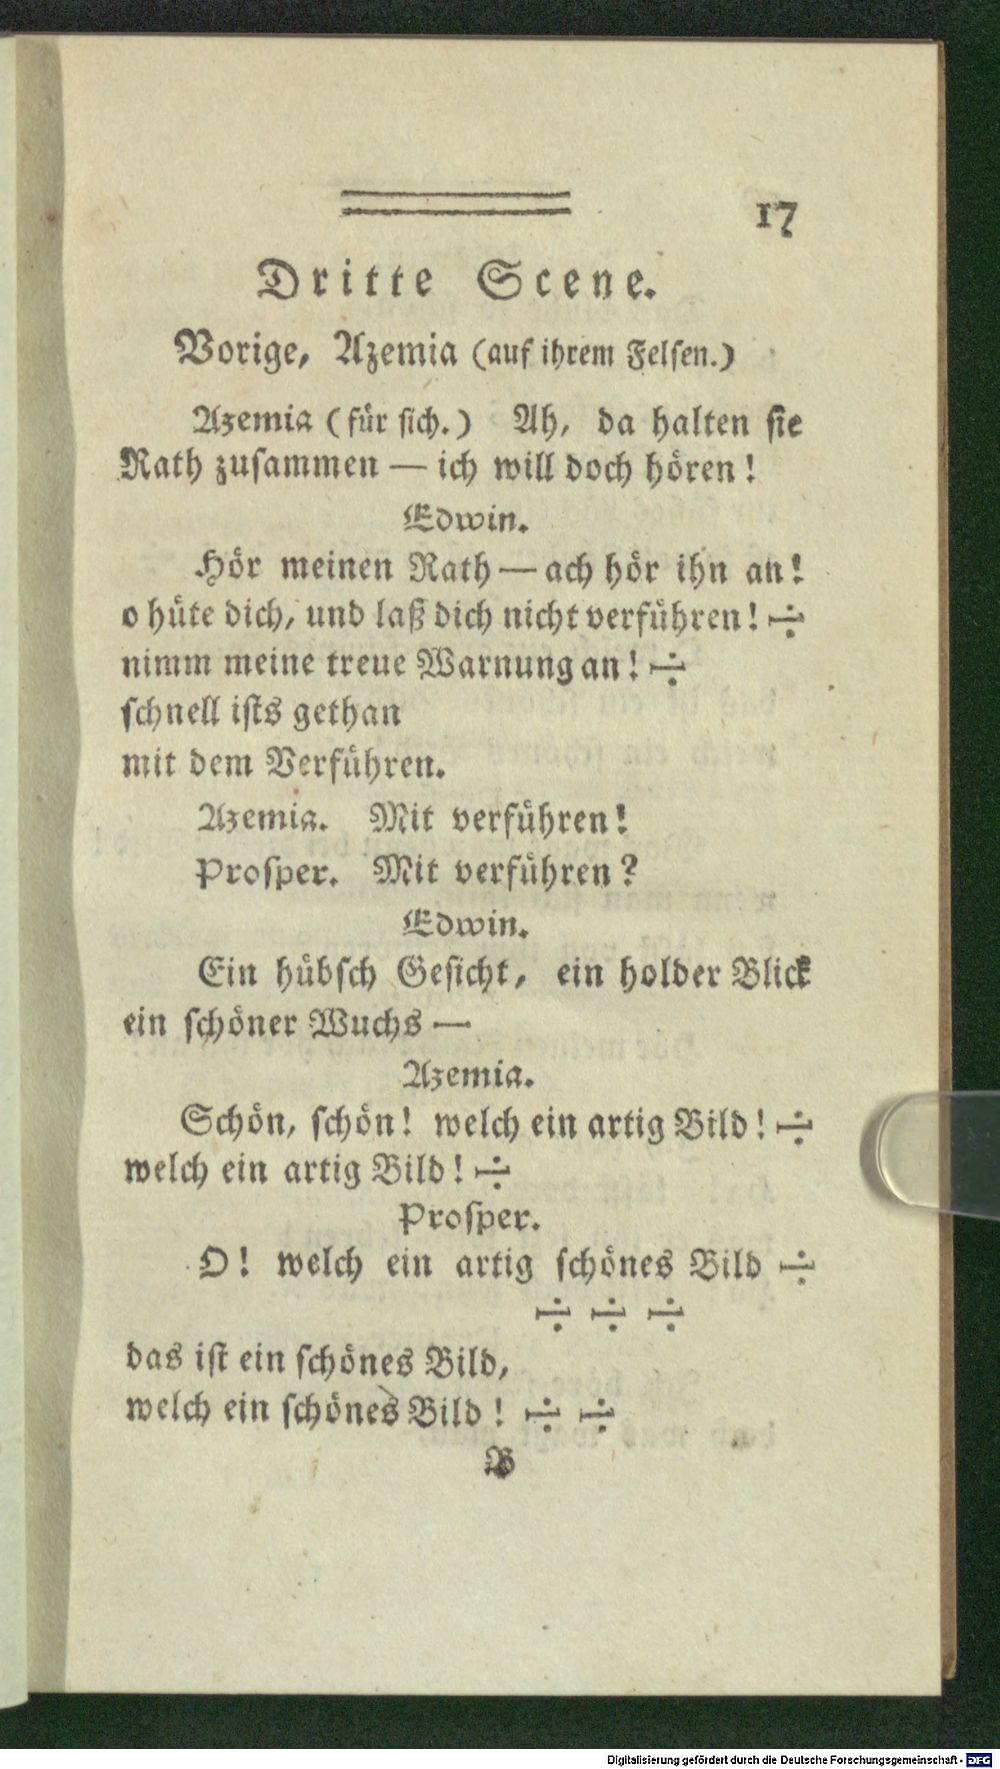 17
Dritte Scene.
Vorige, Azemia (auf ihrem Felsen.)
Azemia (für sich.) Ah, da halten sie
Rath zusammen — ich will doch hören!
Edwin.
Hör meinen Rath — ach hör ihn an!
o hüte dich, und laß dich nicht verführen! ÷
nimm meine treue Warnung an! ÷
schnell ists gethan
mit dem Verführen.
Azemia. Mit verführen!
Prosper. Mit verführen?
Edwin.
Ein hübsch Gesicht, ein holder Blick
ein schöner Wuchs —
Azemia.
Schön, schön! welch ein artig Bild! ÷
welch ein artig Bild! ÷
Prosper.
O! welch ein artig schönes Bild ÷
÷ ÷ ÷
das ist ein schönes Bild,
welch ein schönes Bild! ÷ ÷
B
Digitalisierung gefördert durch die Deutsche Forschungsgemeinschaft - DFG